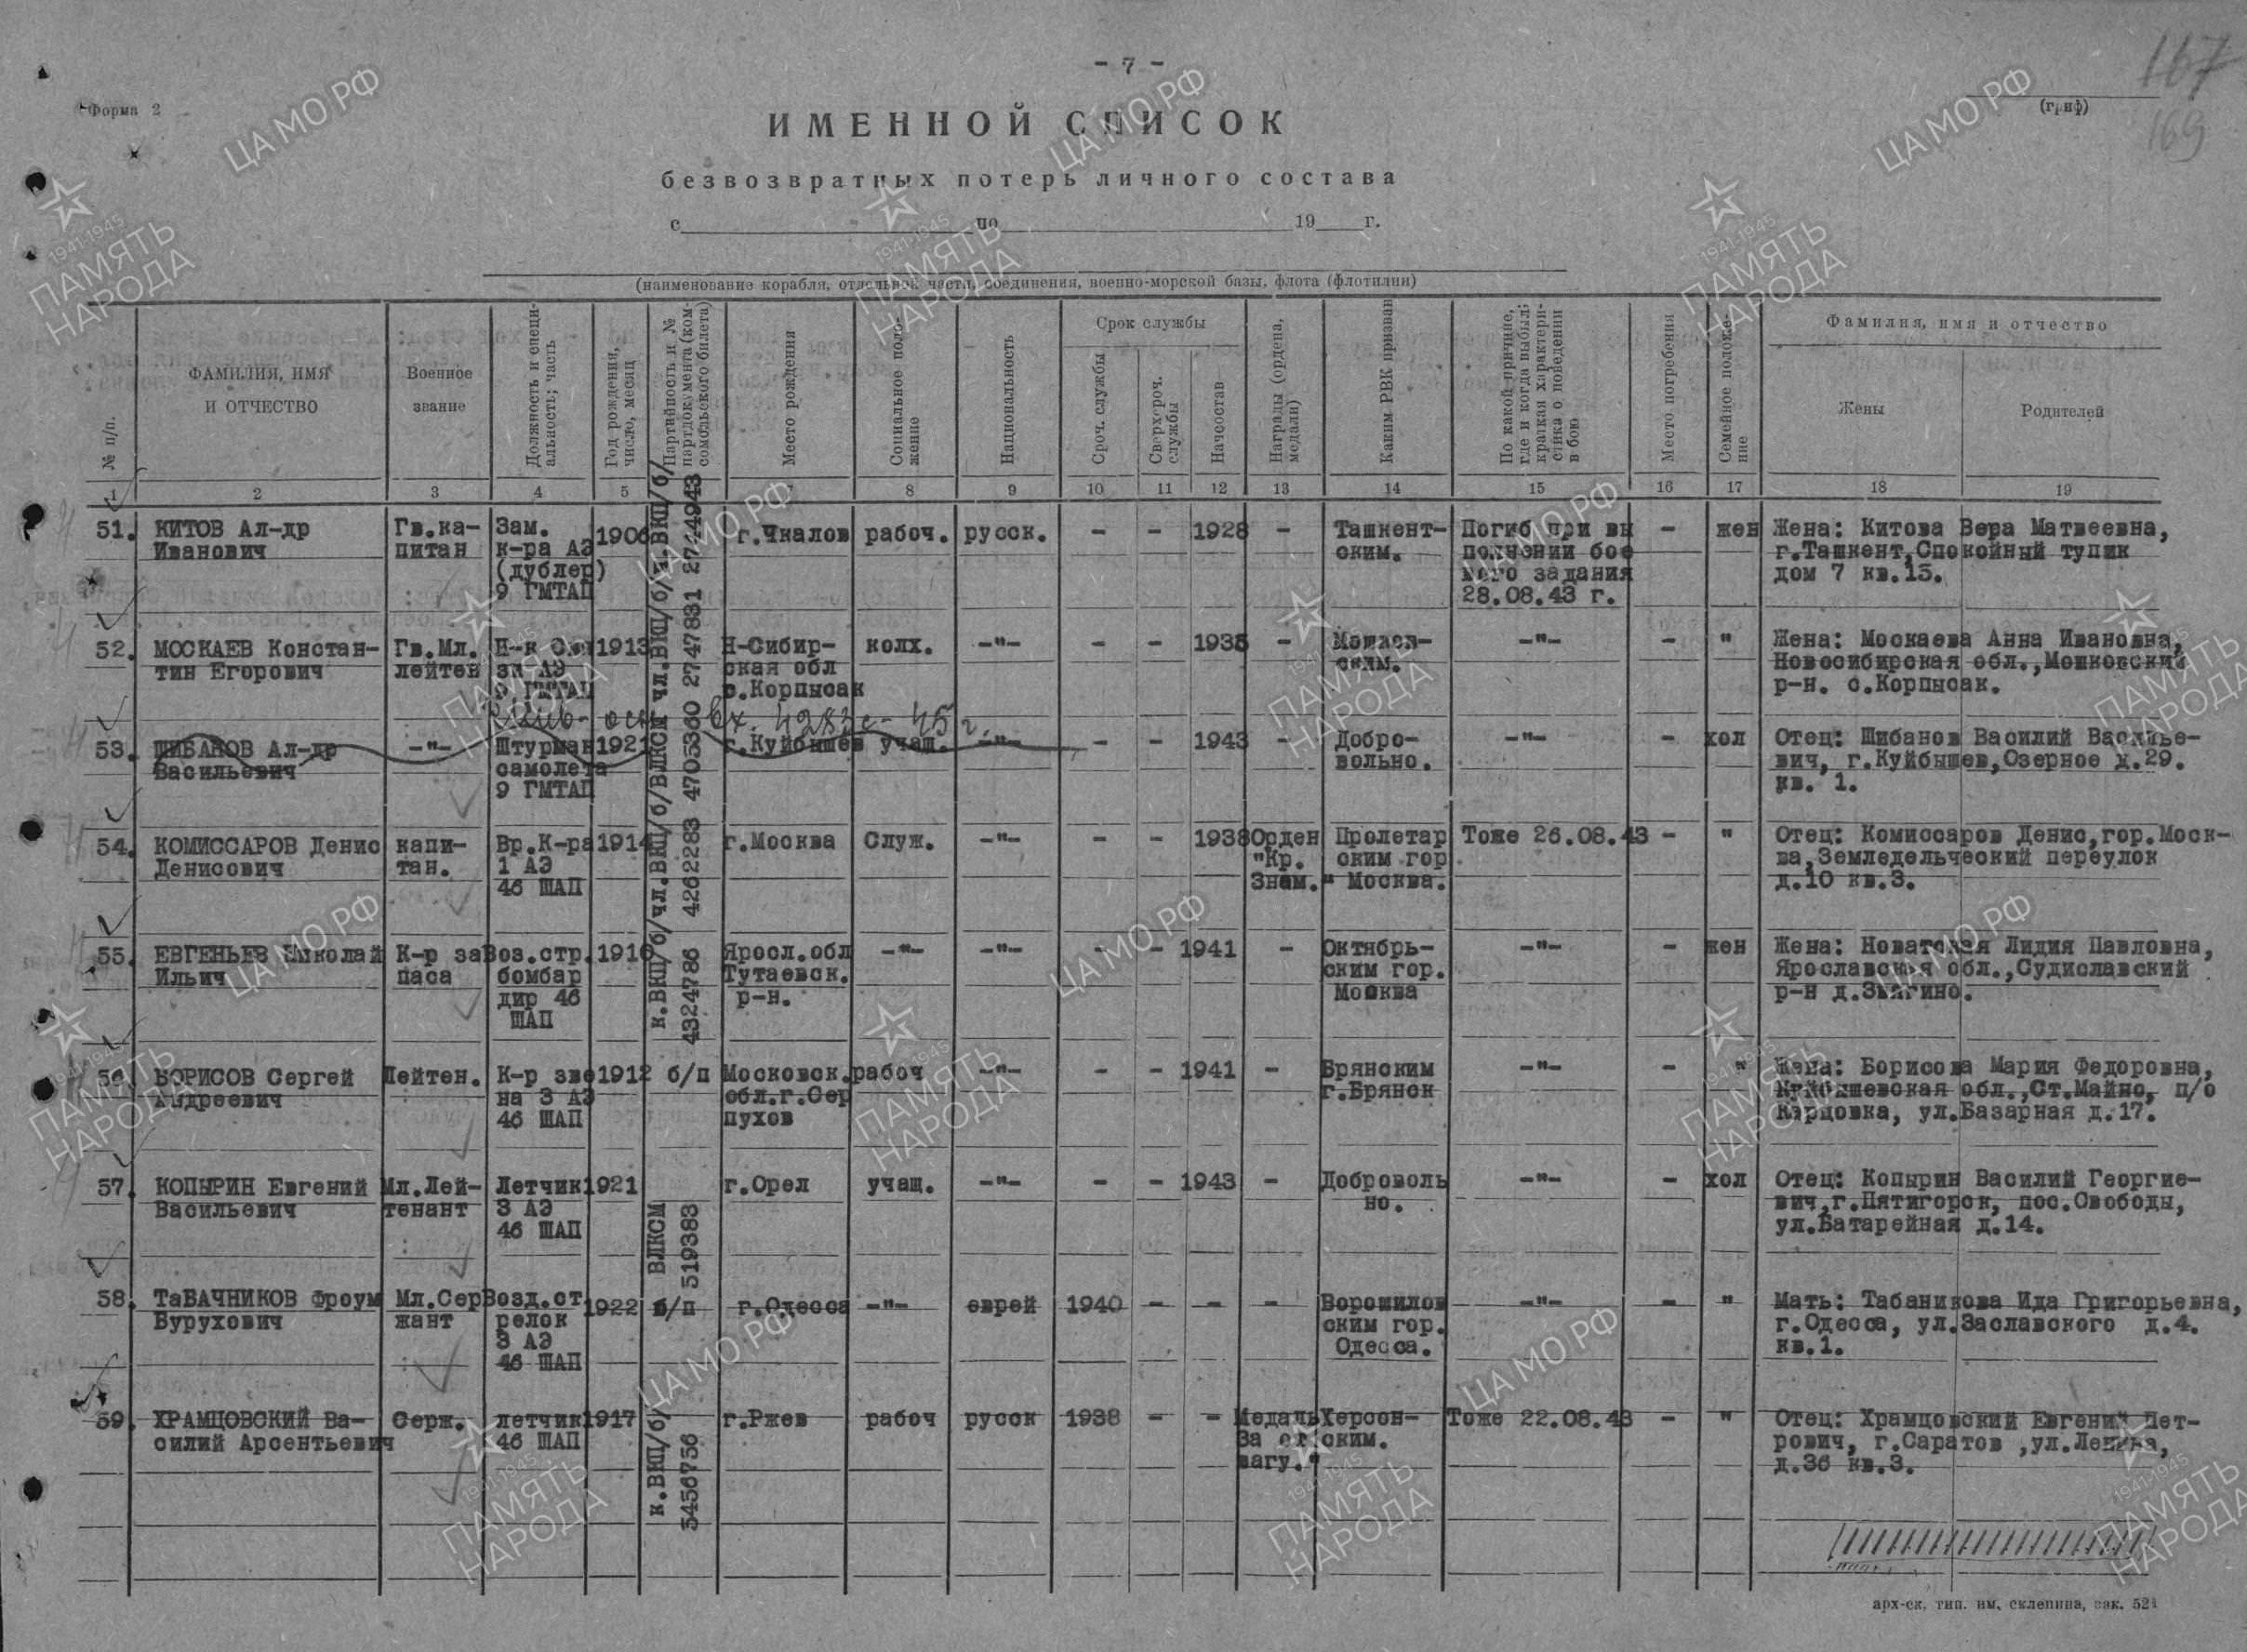 - 7 -
167
Форма 2
(гриф)
169
ИМЕННОЙ СПИСОК
безвозвратных потерь личного состава
с по 19 г.
(наименование корабля, отдельной части, соединения, военно-морской базы, флота (флотилии)
№ п/п.
ФАМИЛИЯ, ИМЯ
И ОТЧЕСТВО
Военное
звание
Должность и специ-
альность; часть
Год рождения,
число, месяц
Партийность и №
партдокумента (ком-
сомольского билета)
Место рождения
Социальное поло-
жение
Национальность
Срок службы
Сроч. службы
Сверхсроч.
службы
Начсостав
Награды (ордена,
медали)
Каким РВК призван
По какой причине,
где и когда выбыл;
краткая характери-
стика о поведении
в бою
Место погребения
Семейное положе-
ние
Фамилия, имя и отчество
Жены
Родителей
1 2 3 4 5 7 8 9 10 11 12 13 14 15 16 17 18 19
51. КИТОВ Ал-др Гв.ка- Зам. 1906 г.Чкалов рабоч. русск. - - 1928 - Ташкент- Погиб при вы - жен Жена: Китова Вера Матвеевна,
Иванович питан к-ра АЭ ским. полнении бое г.Ташкент,Спокойный тупик
(дублер) вого задания дом 7 кв.13.
9 ГМТАП 28.08.43 г.
52. МОСКАЕВ Констан- Гв.Мл. Н-к 1913 Н-Сибир- колх. -"- - - 1935 - -"- - " Жена: Москаева Анна Ивановна,
тин Егорович лейтен зи АЭ ская обл ским. Новосибирская обл.,Мошковский
9 ГМТАП с.Корпысак р-н. с.Корпысак.
вх. 4283с-45г.
53. ШИБАНОВ Ал-др -"- Штурман 1921 г.Куйбышев учащ. -"- - - 1943 - Добро- -"- - хол Отец: Шибанов Василий Василье-
Васильевич самолета вольно. вич, г.Куйбышев,Озерное д.29.
9 ГМТАП кв. 1.
54. КОМИССАРОВ Денис капи- Вр.К-ра 1914 г.Москва Служ. -"- - - 1938 Орден Пролетар Тоже 26.08.43 - " Отец: Комиссаров Денис,гор.Моск-
Денисович тан. 1 АЭ "Кр. ским гор ва,Земледельческий переулок
46 ШАП Знам." Москва. д.10 кв.3.
55. ЕВГЕНЬЕВ Николай К-р за Воз.стр. 1916 Яросл.обл -"- -"- - - 1941 - Октябрь- -"- - жен Жена: Новатская Лидия Павловна,
Ильич паса бомбар Тутаевск. ским гор. Ярославская обл.,Судиславский
дир 46 р-н. Москва р-н д.Звягино.
ШАП
56. БОРИСОВ Сергей Лейтен. К-р зве 1912 б/п Московск. рабоч -"- - - 1941 - Брянским -"- - " Жена: Борисова Мария Федоровна,
Андреевич на 3 АЭ обл.г.Сер г.Брянск Куйбышевская обл.,Ст.Майно, п/о
46 ШАП пухов Карцовка, ул.Базарная д.17.
57. КОПЫРИН Евгений Мл.Лей- Летчик 1921 г.Орел учащ. -"- - - 1943 - Доброволь -"- - хол Отец: Копырин Василий Георгие-
Васильевич тенант 3 АЭ но. вич,г.Пятигорск, пос.Свободы,
46 ШАП ул.Батарейная д.14.
58. ТаБАЧНИКОВ Фроум Мл.Сер Возд.ст 1922 б/п г.Одесса -"- еврей 1940 - - - Ворошилов -"- - " Мать: Табаникова Ида Григорьевна,
Бурухович жант релок ским гор. г.Одесса, ул.Заславского д.4.
3 АЭ Одесса. кв.1.
46 ШАП
59. ХРАМЦОВСКИЙ Ва- Серж. летчик 1917 г.Ржев рабоч русск 1938 - - Медаль Херсон- Тоже 22.08.43 - " Отец: Храмцовский Евгений Пет-
силий Арсентьевич 46 ШАП За от ским. рович, г.Саратов ,ул.Ленина,
вагу." д.36 кв.3.
к.ВКП/б/чл.ВКП/б/ВЛКСМ чл.ВКП/б/ч.ВКП/б/
4324786 4262283 4705360 2747831 2744943
ВЛКСМ
519383
к.ВКП/б/
5456756
арх-ск. тип. им. склепина, зак. 521
ЦА МО РФ
1941-1945
ПАМЯТЬ
НАРОДА